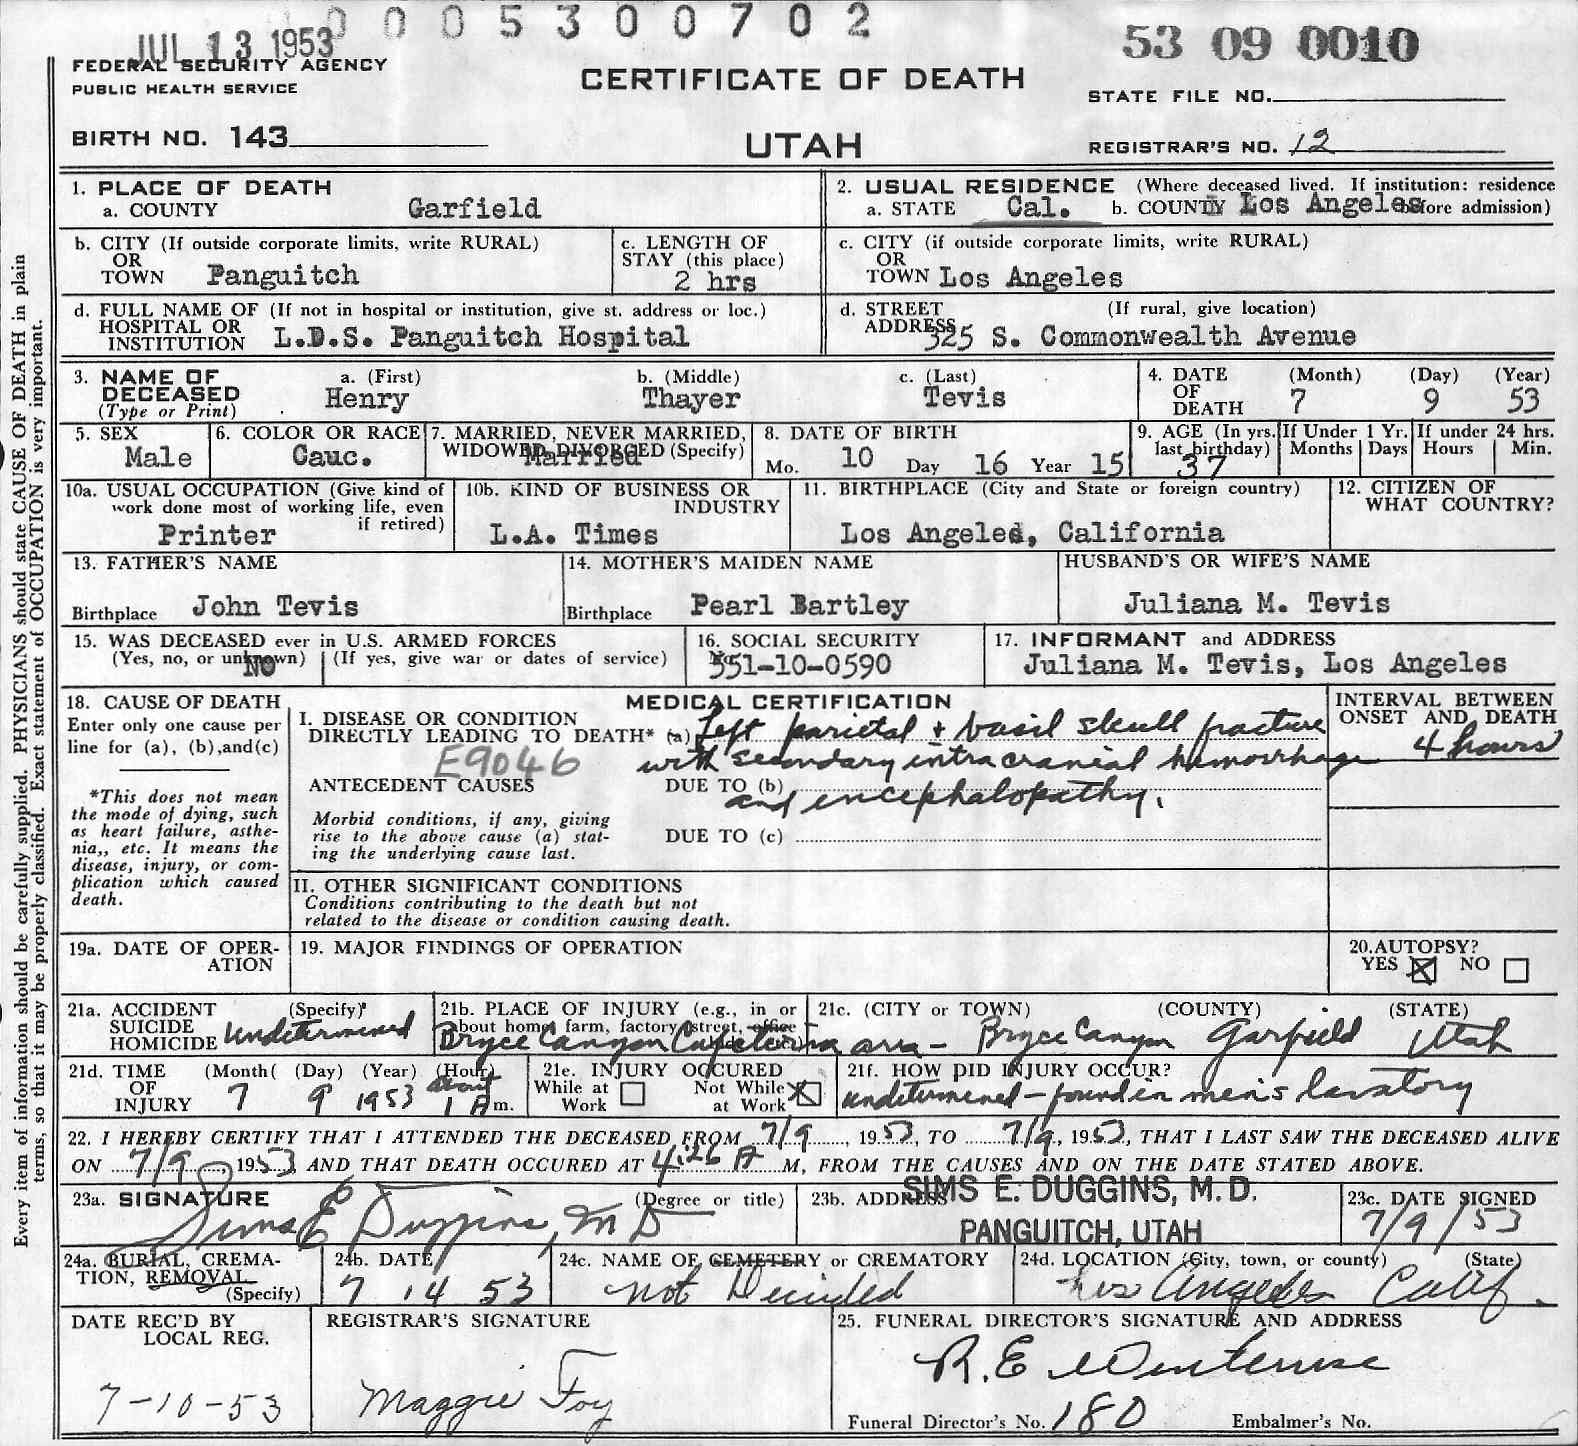 0005300702
JUL 13 1953
53 09 0010
FEDERAL SECURITY AGENCY
PUBLIC HEALTH SERVICE
CERTIFICATE OF DEATH
STATE FILE NO.
BIRTH NO. 143
UTAH
REGISTRAR'S NO. 12
Every item of information should be carefully supplied. PHYSICIANS should state CAUSE OF DEATH in plain
terms, so that it may be properly classified. Exact statement of OCCUPATION is very important.
1. PLACE OF DEATH
a. COUNTY Garfield
2. USUAL RESIDENCE (Where deceased lived. If institution: residence
a. STATE Cal. b. COUNTY Los Angeles before admission)
b. CITY (If outside corporate limits, write RURAL)
OR
TOWN Panguitch
c. LENGTH OF
STAY (this place)
2 hrs
c. CITY (if outside corporate limits, write RURAL)
OR
TOWN Los Angeles
d. FULL NAME OF (If not in hospital or institution, give st. address or loc.)
HOSPITAL OR
INSTITUTION L.D.S. Panguitch Hospital
d. STREET (If rural, give location)
ADDRESS 325 S. Commonwealth Avenue
3. NAME OF
DECEASED
(Type or Print)
a. (First) b. (Middle) c. (Last)
Henry Thayer Tevis
4. DATE
OF
DEATH
(Month) (Day) (Year)
7 9 53
5. SEX
Male
6. COLOR OR RACE
Cauc.
7. MARRIED, NEVER MARRIED,
WIDOWED, DIVORCED (Specify)
Married
8. DATE OF BIRTH
Mo. 10 Day 16 Year 15
9. AGE (In yrs.
last birthday)
37
If Under 1 Yr.
Months Days
If under 24 hrs.
Hours Min.
10a. USUAL OCCUPATION (Give kind of
work done most of working life, even
if retired)
Printer
10b. KIND OF BUSINESS OR
INDUSTRY
L.A. Times
11. BIRTHPLACE (City and State or foreign country)
Los Angeles, California
12. CITIZEN OF
WHAT COUNTRY?
13. FATHER'S NAME
Birthplace John Tevis
14. MOTHER'S MAIDEN NAME
Birthplace Pearl Bartley
HUSBAND'S OR WIFE'S NAME
Juliana M. Tevis
15. WAS DECEASED ever in U.S. ARMED FORCES
(Yes, no, or unknown) (If yes, give war or dates of service)
NO
16. SOCIAL SECURITY
551-10-0590
17. INFORMANT and ADDRESS
Juliana M. Tevis, Los Angeles
18. CAUSE OF DEATH
Enter only one cause per
line for (a), (b),and(c)
*This does not mean
the mode of dying, such
as heart failure, asthe-
nia,, etc. It means the
disease, injury, or com-
plication which caused
death.
MEDICAL CERTIFICATION
I. DISEASE OR CONDITION
DIRECTLY LEADING TO DEATH* (a) Left parietal + basil skull fracture
E9046 with secondary intracranial hemorrhage
ANTECEDENT CAUSES DUE TO (b)
and encephalopathy.
Morbid conditions, if any, giving
rise to the above cause (a) stat-
ing the underlying cause last.
DUE TO (c)
INTERVAL BETWEEN
ONSET AND DEATH
4 hours
II. OTHER SIGNIFICANT CONDITIONS
Conditions contributing to the death but not
related to the disease or condition causing death.
19a. DATE OF OPER-
ATION
19. MAJOR FINDINGS OF OPERATION
20.AUTOPSY?
YES NO
21a. ACCIDENT (Specify)
SUICIDE
HOMICIDE Undetermined
21b. PLACE OF INJURY (e.g., in or
about home, farm, factory, street, office
Bryce Canyon Cafeteria area -
21c. (CITY or TOWN) (COUNTY) (STATE)
Bryce Canyon Garfield Utah
21d. TIME
OF
INJURY
(Month( (Day) (Year) (Hour)
7 9 1953 about 1 A m.
21e. INJURY OCCURED
While at
Work
Not While
at Work
21f. HOW DID INJURY OCCUR?
undetermined - found in men's lavatory
22. I HEREBY CERTIFY THAT I ATTENDED THE DECEASED FROM 7/9, 1953, TO 7/9, 1953, THAT I LAST SAW THE DECEASED ALIVE
ON 7/9 1953, AND THAT DEATH OCCURED AT 4:26 A M, FROM THE CAUSES AND ON THE DATE STATED ABOVE.
23a. SIGNATURE (Degree or title)
Sims E Duggins, MD
23b. ADDRESS
SIMS E. DUGGINS, M.D.
PANGUITCH, UTAH
23c. DATE SIGNED
7/9/53
24a. BURIAL, CREMA-
TION, REMOVAL
(Specify)
24b. DATE
7 14 53
24c. NAME OF CEMETERY or CREMATORY
not Decided
24d. LOCATION (City, town, or county) (State)
Los Angeles Calif.
DATE REC'D BY
LOCAL REG.
7-10-53
REGISTRAR'S SIGNATURE
Maggie Foy
25. FUNERAL DIRECTOR'S SIGNATURE AND ADDRESS
R.E.
Funeral Director's No. 180 Embalmer's No.